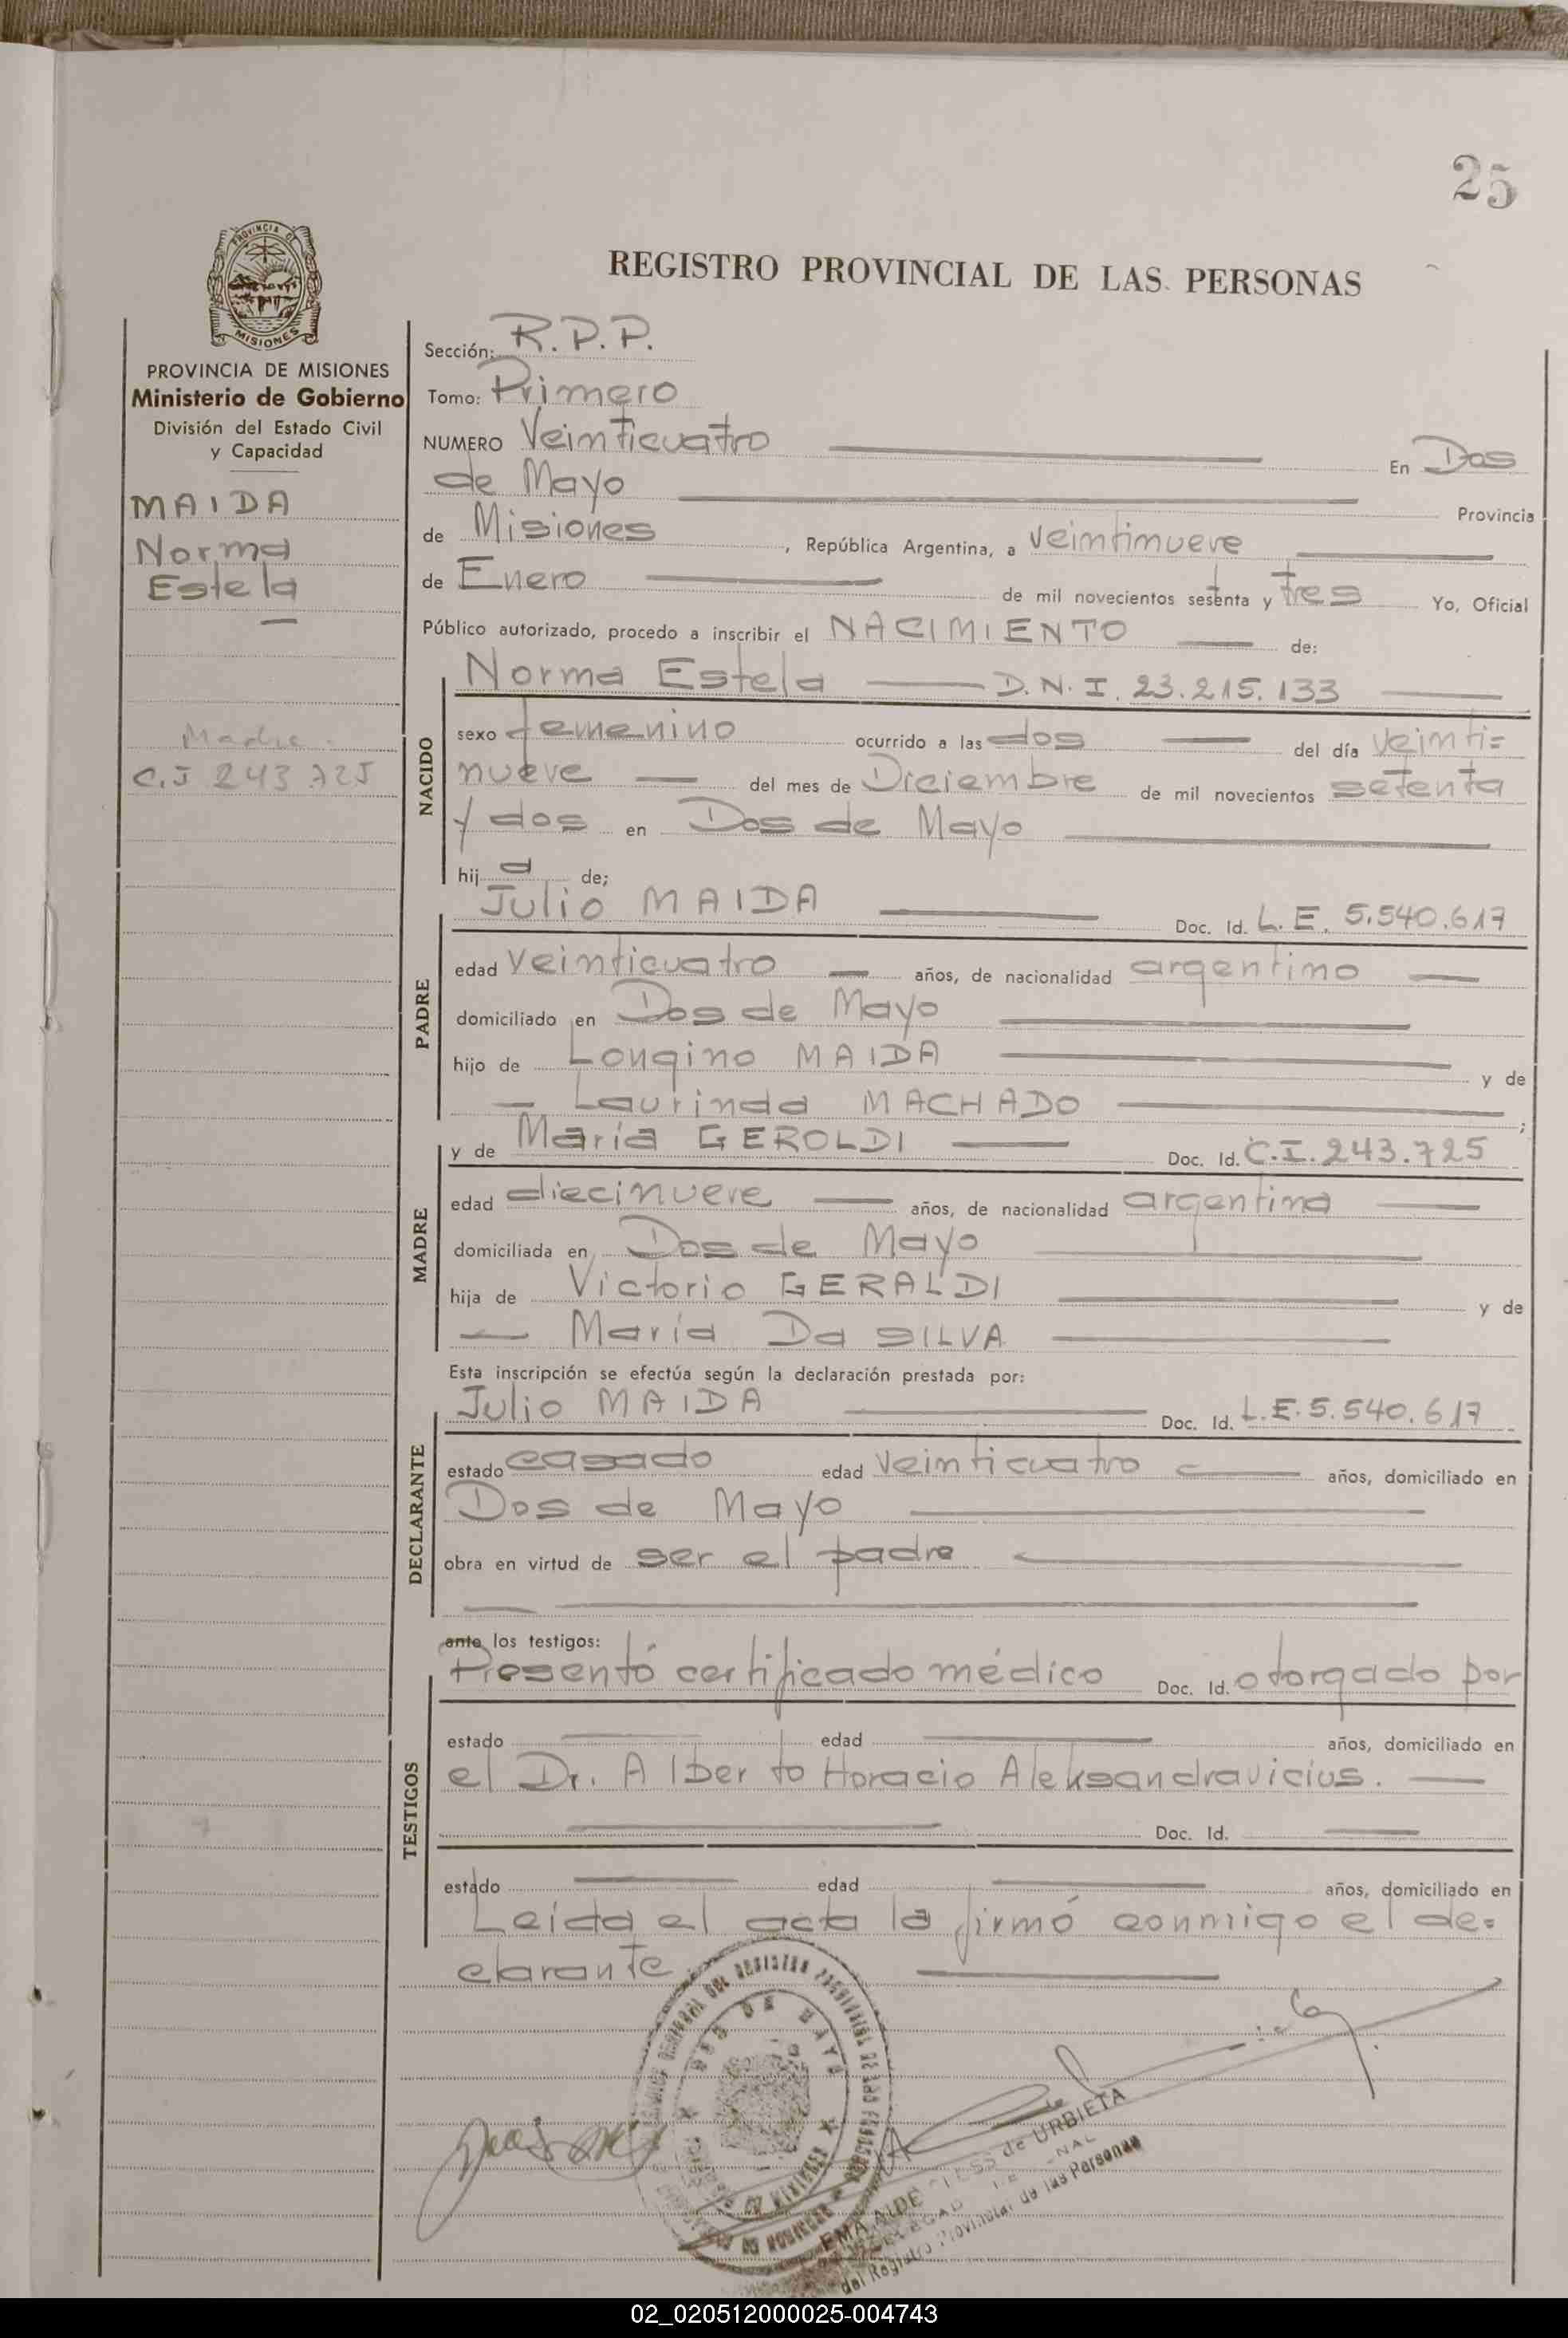 25
PROVINCIA DE
MISIONES
REGISTRO PROVINCIAL DE LAS PERSONAS
PROVINCIA DE MISIONES
Ministerio de Gobierno
División del Estado Civil
y Capacidad
MAIDA
Norma
Estela
Madre
C.I 243.725
Sección: R.P.P.
Tomo: Primero
NUMERO Veinticuatro En Dos
de Mayo Provincia
de Misiones, República Argentina, a veintinueve
de Enero de mil novecientos setenta y tres Yo, Oficial
Público autorizado, procedo a inscribir el NACIMIENTO de:
Norma Estela D.N.I. 23.215.133
NACIDO
sexo femenino ocurrido a las dos del día veinti=
nueve del mes de Diciembre de mil novecientos setenta
y dos en Dos de Mayo
hij a de;
Julio MAIDA Doc. Id. L.E. 5.540.617
PADRE
edad veinticuatro años, de nacionalidad argentino
domiciliado en Dos de Mayo
hijo de Longino MAIDA y de
Laurinda MACHADO ;
y de María GEROLDI Doc. Id. C.I. 243.725
MADRE
edad diecinueve años, de nacionalidad argentina
domiciliada en Dos de Mayo
hija de Victorio GERALDI y de
María Da SILVA
Esta inscripción se efectúa según la declaración prestada por:
Julio MAIDA Doc. Id. L.E. 5.540.617
DECLARANTE
estado casado edad veinticuatro años, domiciliado en
Dos de Mayo
obra en virtud de ser el padre
ante los testigos:
Presentó certificado médico Doc. Id. otorgado por
TESTIGOS
estado edad años, domiciliado en
el Dr. Alberto Horacio Aleksandravicius.
Doc. Id.
estado edad años, domiciliado en
Leída el acta la firmó conmigo el de=
clarante
DOS DE MAYO
EMA AIDE de URBIETA
del Registro Provincial de las Personas
02_020512000025-004743